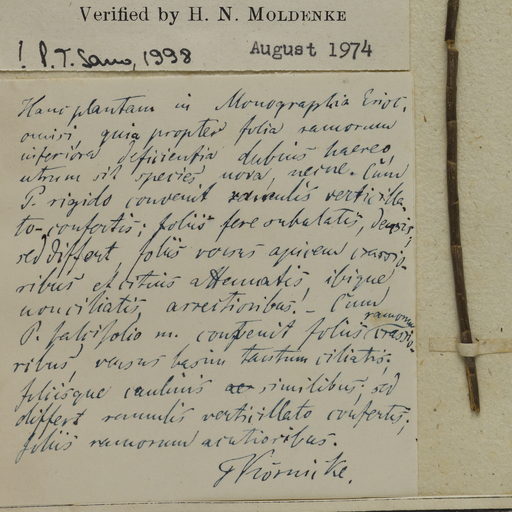 Verified by H. N. MOLDENKE
! P. T. Sano, 1998
August 1974
Hanc plantam in Monographia Erioc.
omisi, quia propter folia ramorum
inferiora deficientia dubius haereo,
utrum sit species nova, necne. Cum
P. rigido convenit ramulis verticilla-
to-confertis; foliis fere subulatis, densis,
sed differt foliis versus apicem crassio-
ribus et citius attenuatis, ibique
non ciliatis, arrectioribus. - Cum
P. falcifolio m. convenit foliis ramorum crassio-
ribus, versus basin tantum ciliatis,
foliisque caulinis similibus, sed
differt ramulis verticillato confertis,
foliis ramorum acutioribus.
F Körnicke.